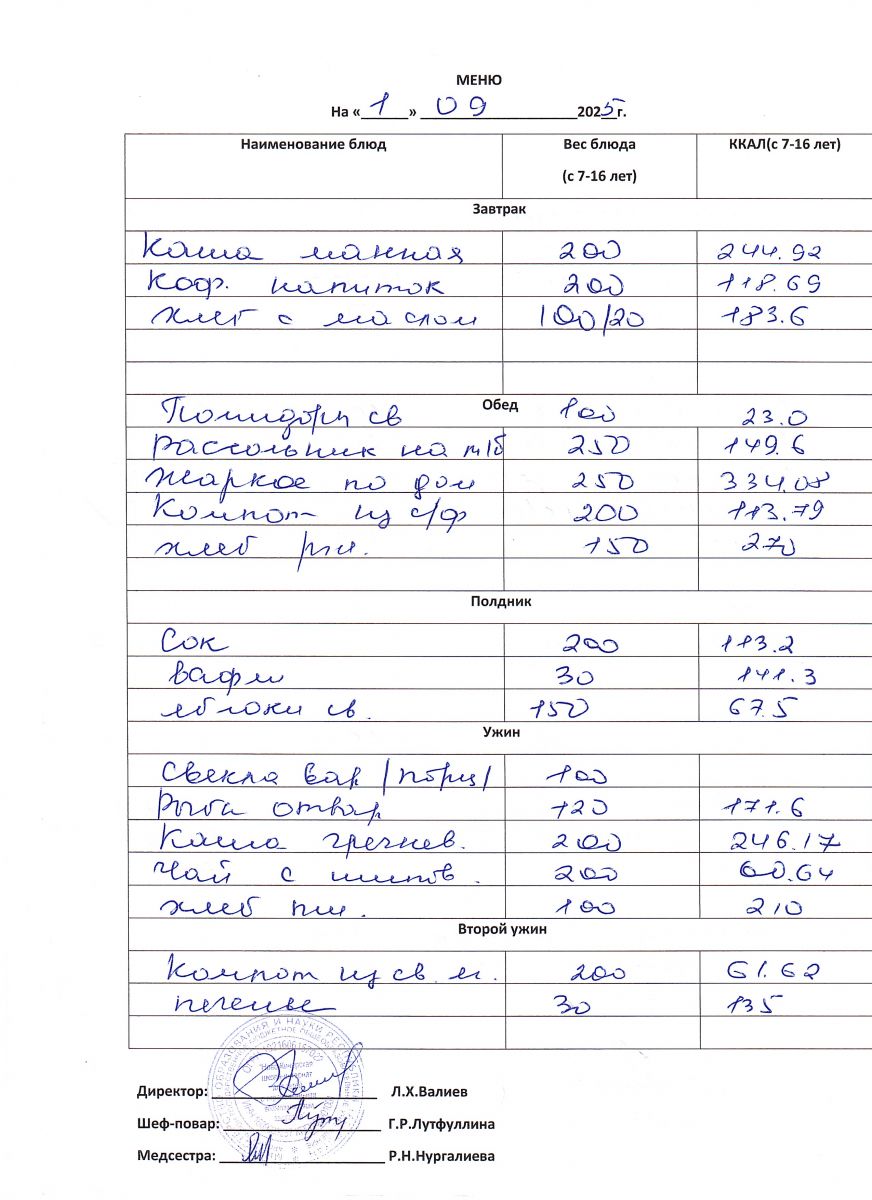 МЕНЮ
На « 1 » 09 2025 г.
Наименование блюд Вес блюда (с 7-16 лет) ККАЛ(с 7-16 лет)
Завтрак
Каша манная 200 244.92
Коф. напиток 200 118.69
Хлеб с маслом 100/20 183.6
Обед
Помидоры св 100 23.0
Рассольник на м/б 250 149.6
Жаркое по дом 250 334.08
Компот из с/ф 200 113.79
хлеб рж. 150 270
Полдник
Сок 200 113.2
вафли 30 141.3
яблоки св. 150 67.5
Ужин
Свекла вар /порц/ 100
Рыба отвар 120 171.6
Каша гречнев. 200 246.17
Чай с шипов. 200 60.64
хлеб пш. 100 210
Второй ужин
Компот из св. м. 200 61.62
печенье 30 135
Директор: Л.Х.Валиев
Шеф-повар: Г.Р.Лутфуллина
Медсестра: Р.Н.Нургалиева